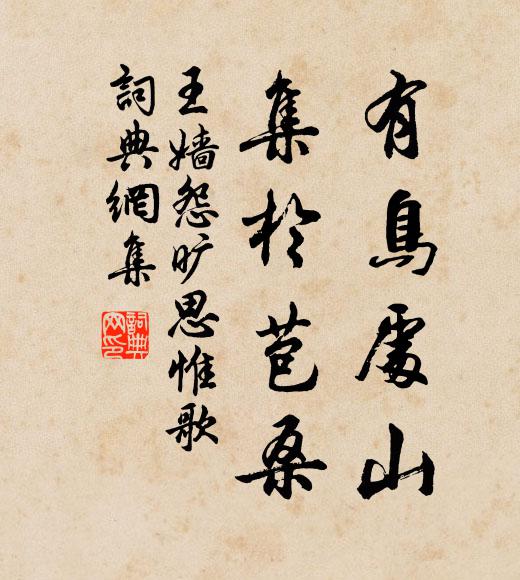 有鳥處山
集於苞桑
王嬙怨旷思惟歌
詞典網集
詞典網印